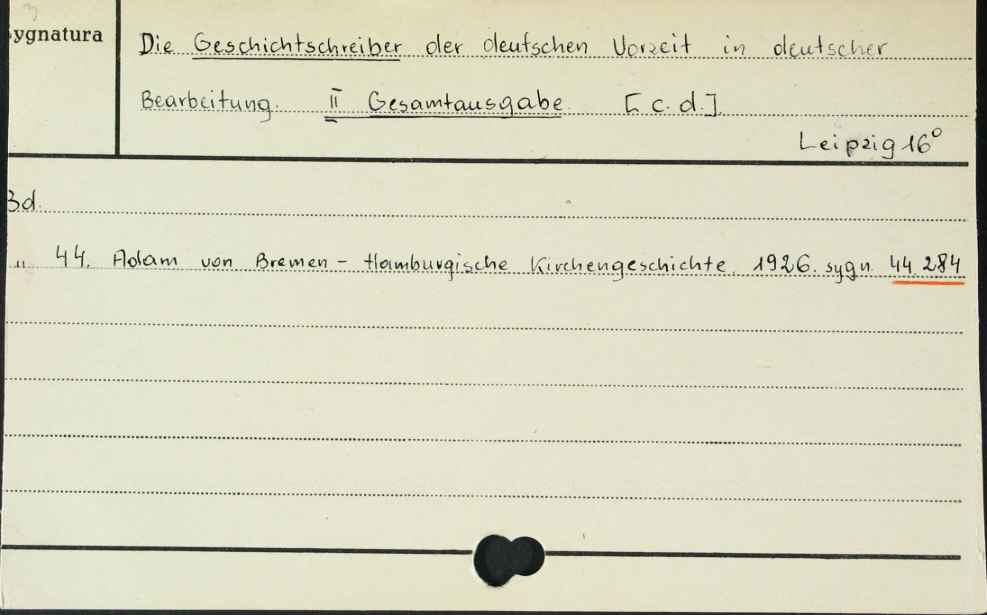 ygnatura
Die Geschichtschreiber der deutschen Vorzeit in deutscher
Bearbeitung. II Gesamtausgabe [c.d.].
Leipzig 16°
Bd.
„ 44. Adam von Bremen - Hamburgische Kirchengeschichte. 1926. sygn. 44.284